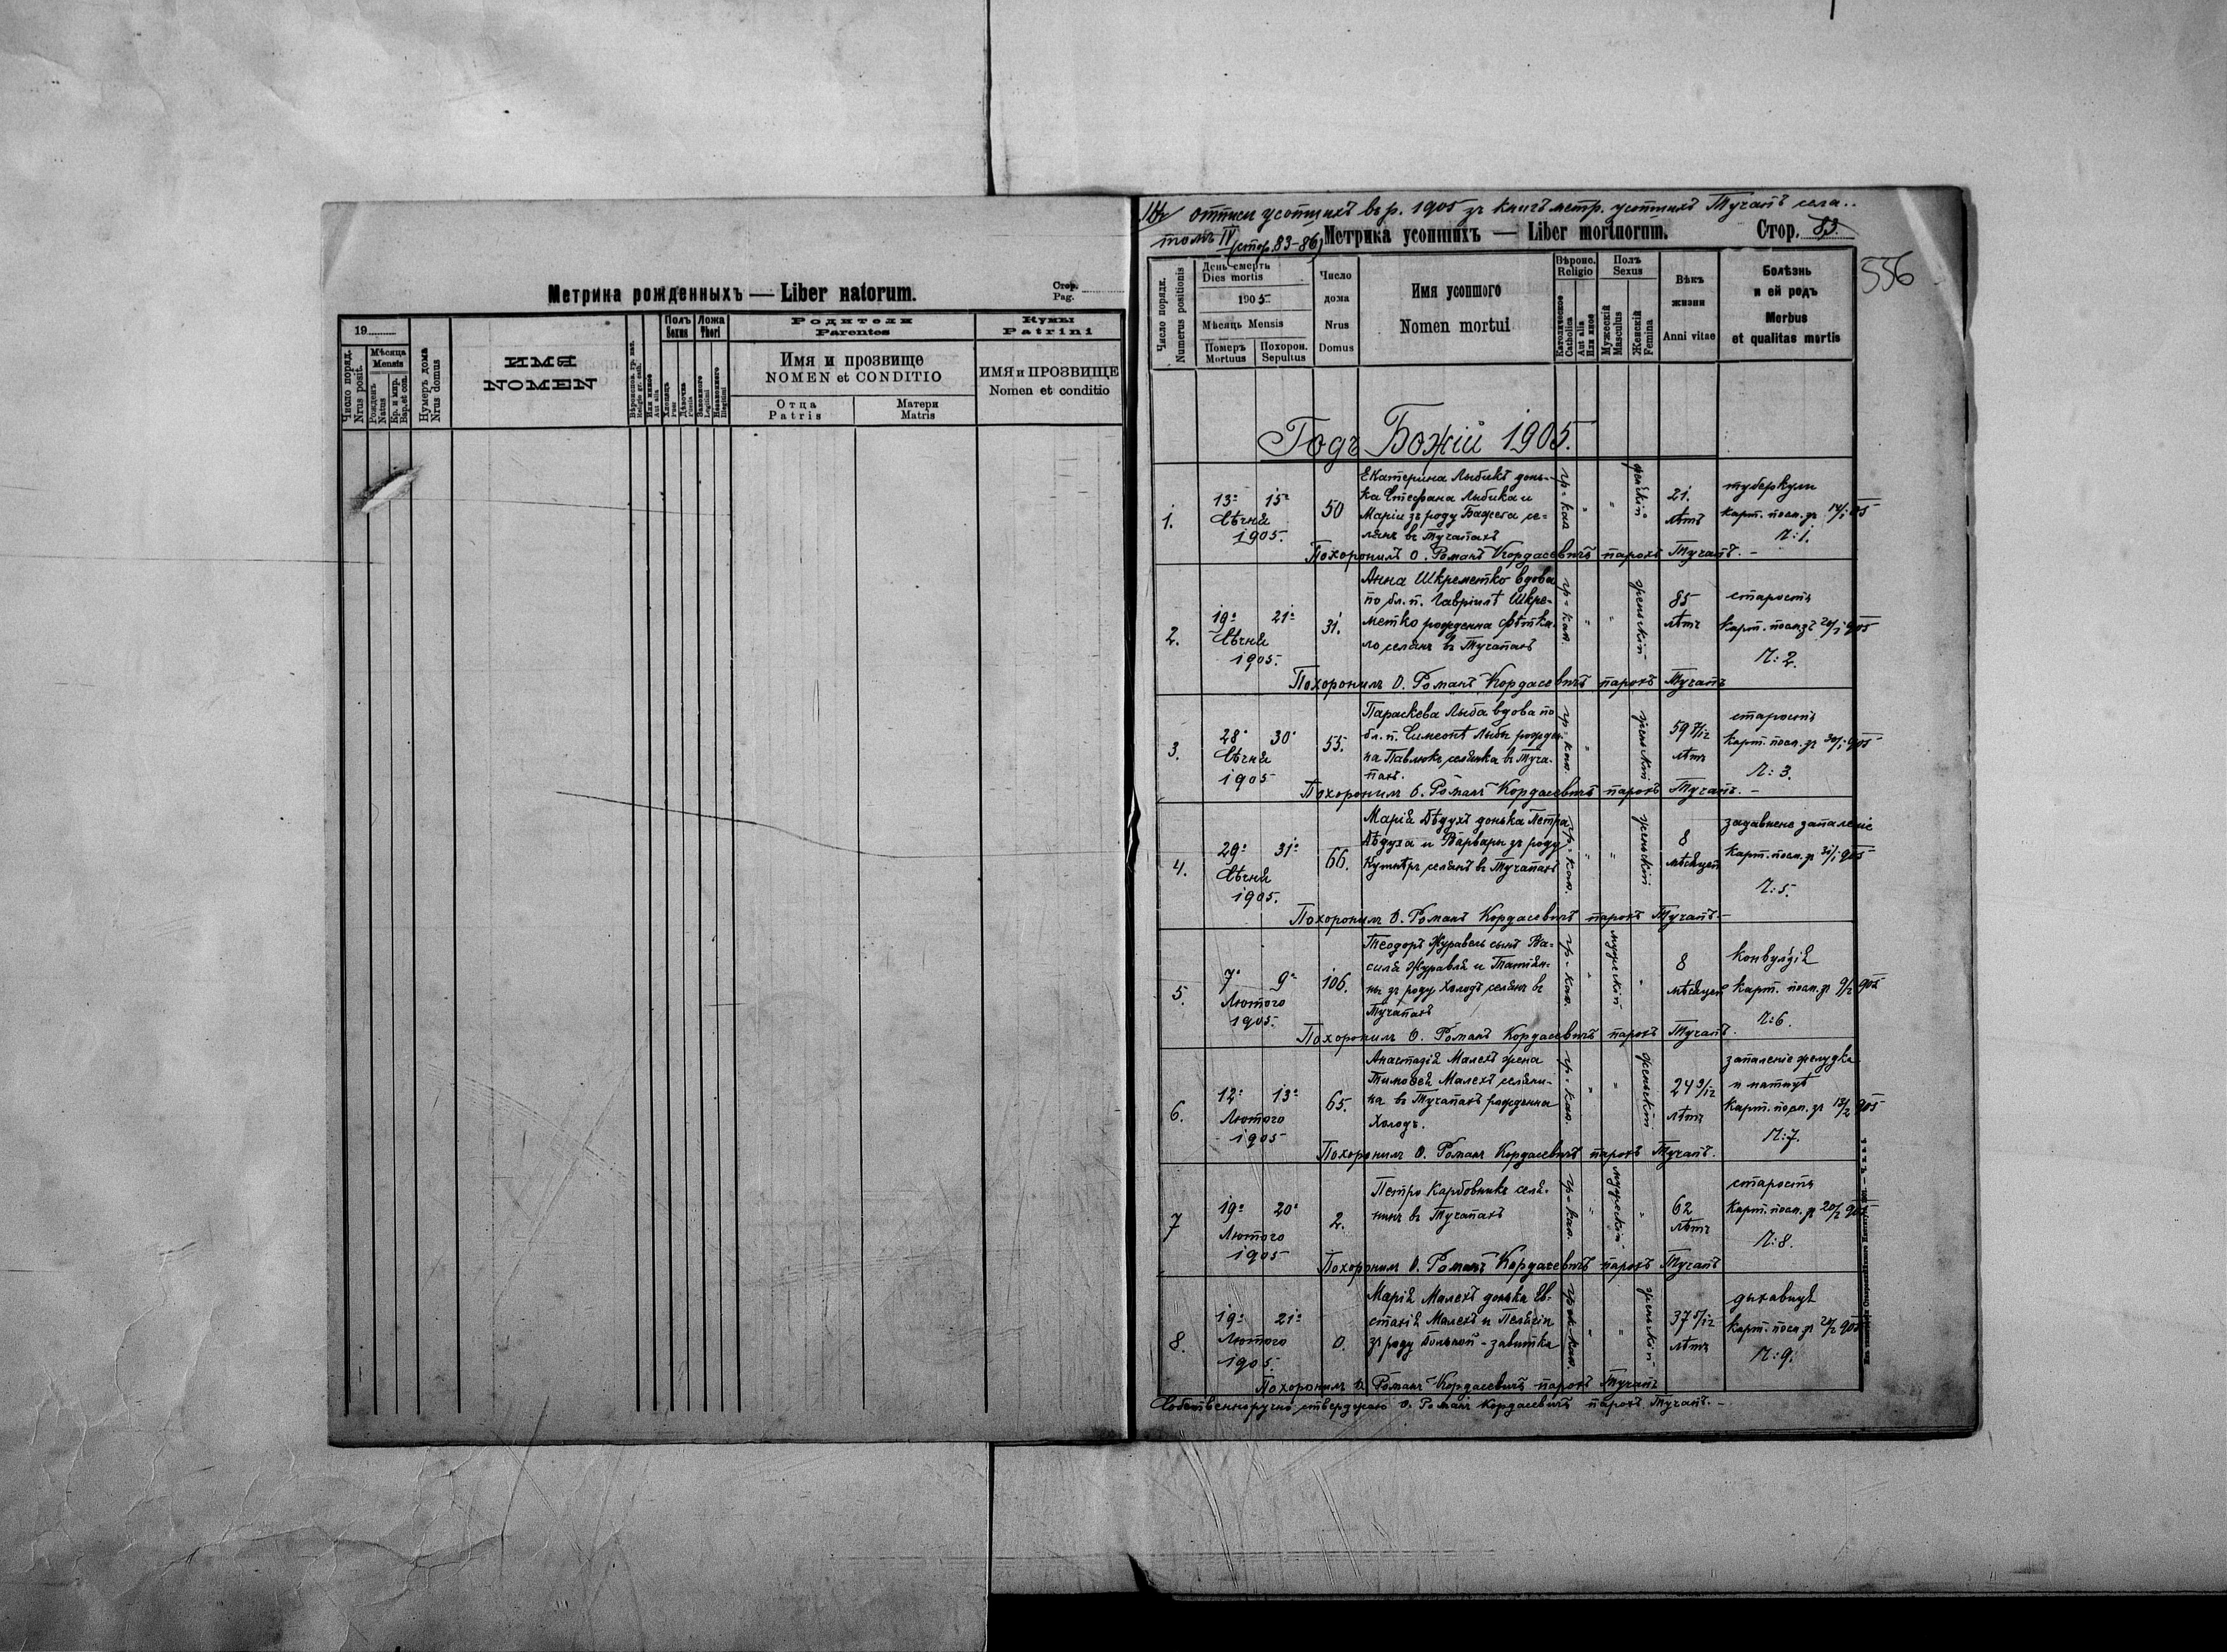 Метрика рожденныхъ — Liber natorum.
Стор.
Pag.
19
Число поряд.
Nrus posit.
Мѣсяца
Mensis
Рожденъ
Natus
Кр. и мѵр.
Bap. et con.
Нумеръ дома
Nrus domus
ИМЯ
NOMEN
Или иное
Aut alia
Полъ
Sexus
Хлопець
Puer
Дѣвочка
Puella
Ложа
Thori
Законного
Legitimi
Незаконного
Illegitimi
Родители
Parentes
Имя и прозвище
NOMEN et CONDITIO
Отца
Patris
Матери
Matris
Кумы
Patrini
ИМЯ и ПРОЗВИЩЕ
Nomen et conditio
отписи усопшихъ въ р. 1905 зъ книгъ метр. усопшихъ Тучапъ села..
томъ IV (стор. 83-86)
Метрика усопшихъ — Liber mortuorum.
Стор. 83.
556
Число порядк.
Numerus positionis
День смерть
Dies mortis
1905
Мѣсяць Mensis
Померъ
Mortuus
Похорон.
Sepultus
Число
дома
Nrus
Domus
Имя усопшого
Nomen mortui
Вѣроис.
Religio
Католическое
Catholica
Или иное
Aut alia
Полъ
Sexus
Мужескій
Masculus
Женскій
Femina
Вѣкъ
жизни
Anni vitae
Болѣзнь
и ей родъ
Morbus
et qualitas mortis
Годъ Божій 1905.
1.
13. 15.
Сѣчня
1905.
50
Екатерина Лыбикъ донь-
ка Стефана Лыбика и
Маріи зъ роду Бафега се-
лянъ въ Тучапахъ
гр.- кат
" "
женскій
21.
лѣтъ
туберкули
карт. посм. зъ 14/1 905
Л: 1.
Похоронилъ О. Романъ Кордасевичъ парохъ Тучапъ. -
2.
19. 21.
Сѣчня
1905.
31.
Анна Шкреметко вдова
по бл. п. Гавріилѣ Шкре-
метко рожденна
ло селянъ въ Тучапахъ
гр.- кат.
" "
женьскій
85
лѣтъ
старость
карт. посм. зъ 20/1 905
Л: 2.
Похоронилъ О. Романъ Кордасевичъ парохъ Тучапъ
3.
28. 30.
Сѣчня
1905
55.
Параскева Лыба вдова по
бл. п. Симеонѣ Лыбы рожден-
на Павлюкъ селянка въ Туча-
пахъ.
гр.- кат.
"
женьскій
59 7/12
лѣтъ
старость
карт. посм. зъ 30/1 905
Л: 3.
Похоронилъ О. Романъ Кордасевичъ парохъ Тучапъ. -
4.
29. 31.
Сѣчня
1905.
66.
Марія Дѣдухъ донька Петра
Дѣдуха и Варвары зъ роду
Кушнѣръ селянъ въ Тучапахъ
гр.- кат.
" "
женьскій
8
мѣсяцей
задавнене запаленіе
карт. посм. зъ 31/1 905
Л: 5.
Похоронилъ О. Романъ Кордасевичъ парохъ Тучапъ -
5.
7. 9.
Лютого
1905.
106.
Теодоръ Журавель сынъ Ва-
силя Журавля и Татіян-
ны зъ роду Холодъ селянъ въ
Тучапахъ
гр.- кат.
"
мужескій
"
8
мѣсяцей
конвулзія
карт. посм. зъ 9/2 905
Л: 6.
Похоронилъ О. Романъ Кордасевичъ парохъ Тучапъ.
6.
12. 13.
Лютого
1905
65.
Анастазія Малехъ жена
Тимоѳея Малехъ селяни-
на въ Тучапахъ рожденна
Холодъ.
гр.- кат.
" "
женьскій
24 9/12
лѣтъ
запаленіе желудка
карт. посм. зъ 13/2 905
Л: 7.
Похоронилъ О. Романъ Кордасевичъ парохъ Тучапъ.
7
19. 20.
Лютого
1905
2.
Петро Карбовникъ селя-
нинъ въ Тучапахъ
гр.- кат.
"
мужескій
"
62
лѣтъ
старость
карт. посм. зъ 20/2 905
Л: 8.
Похоронилъ О. Романъ Кордасевичъ парохъ Тучапъ
8.
19. 21.
Лютого
1905.
0.
Марія Малехъ донька Ев-
стахія Малехъ и Пелягіи
зъ роду - завитка
гр.- кат.
" "
женьскій
37 5/12
лѣтъ
дыхавиця
карт. посм. зъ 20/2 905
Л: 9.
Похоронилъ О. Романъ Кордасевичъ парохъ Тучапъ
Собственноручно ствержаю О. Романъ Кордасевичъ парохъ Тучапъ. -